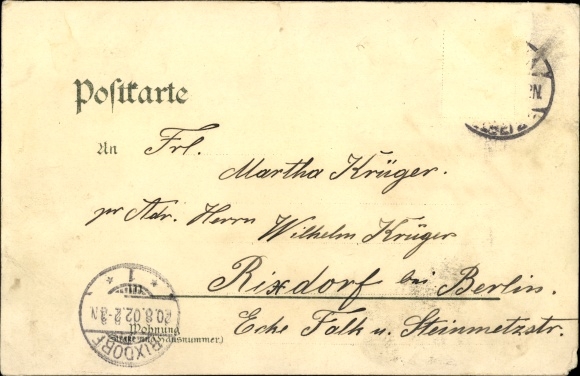 Postkarte
An Frl.
Martha Krüger.
pr Adr. Herrn
Wilhelm Krüger
Rixdorf bei Berlin.
Wohnung
(Straße und Hausnummer)
Ecke Falk u. Steinmetzstr.
* 1 *
20.8.02.2-3N
RIXDORF